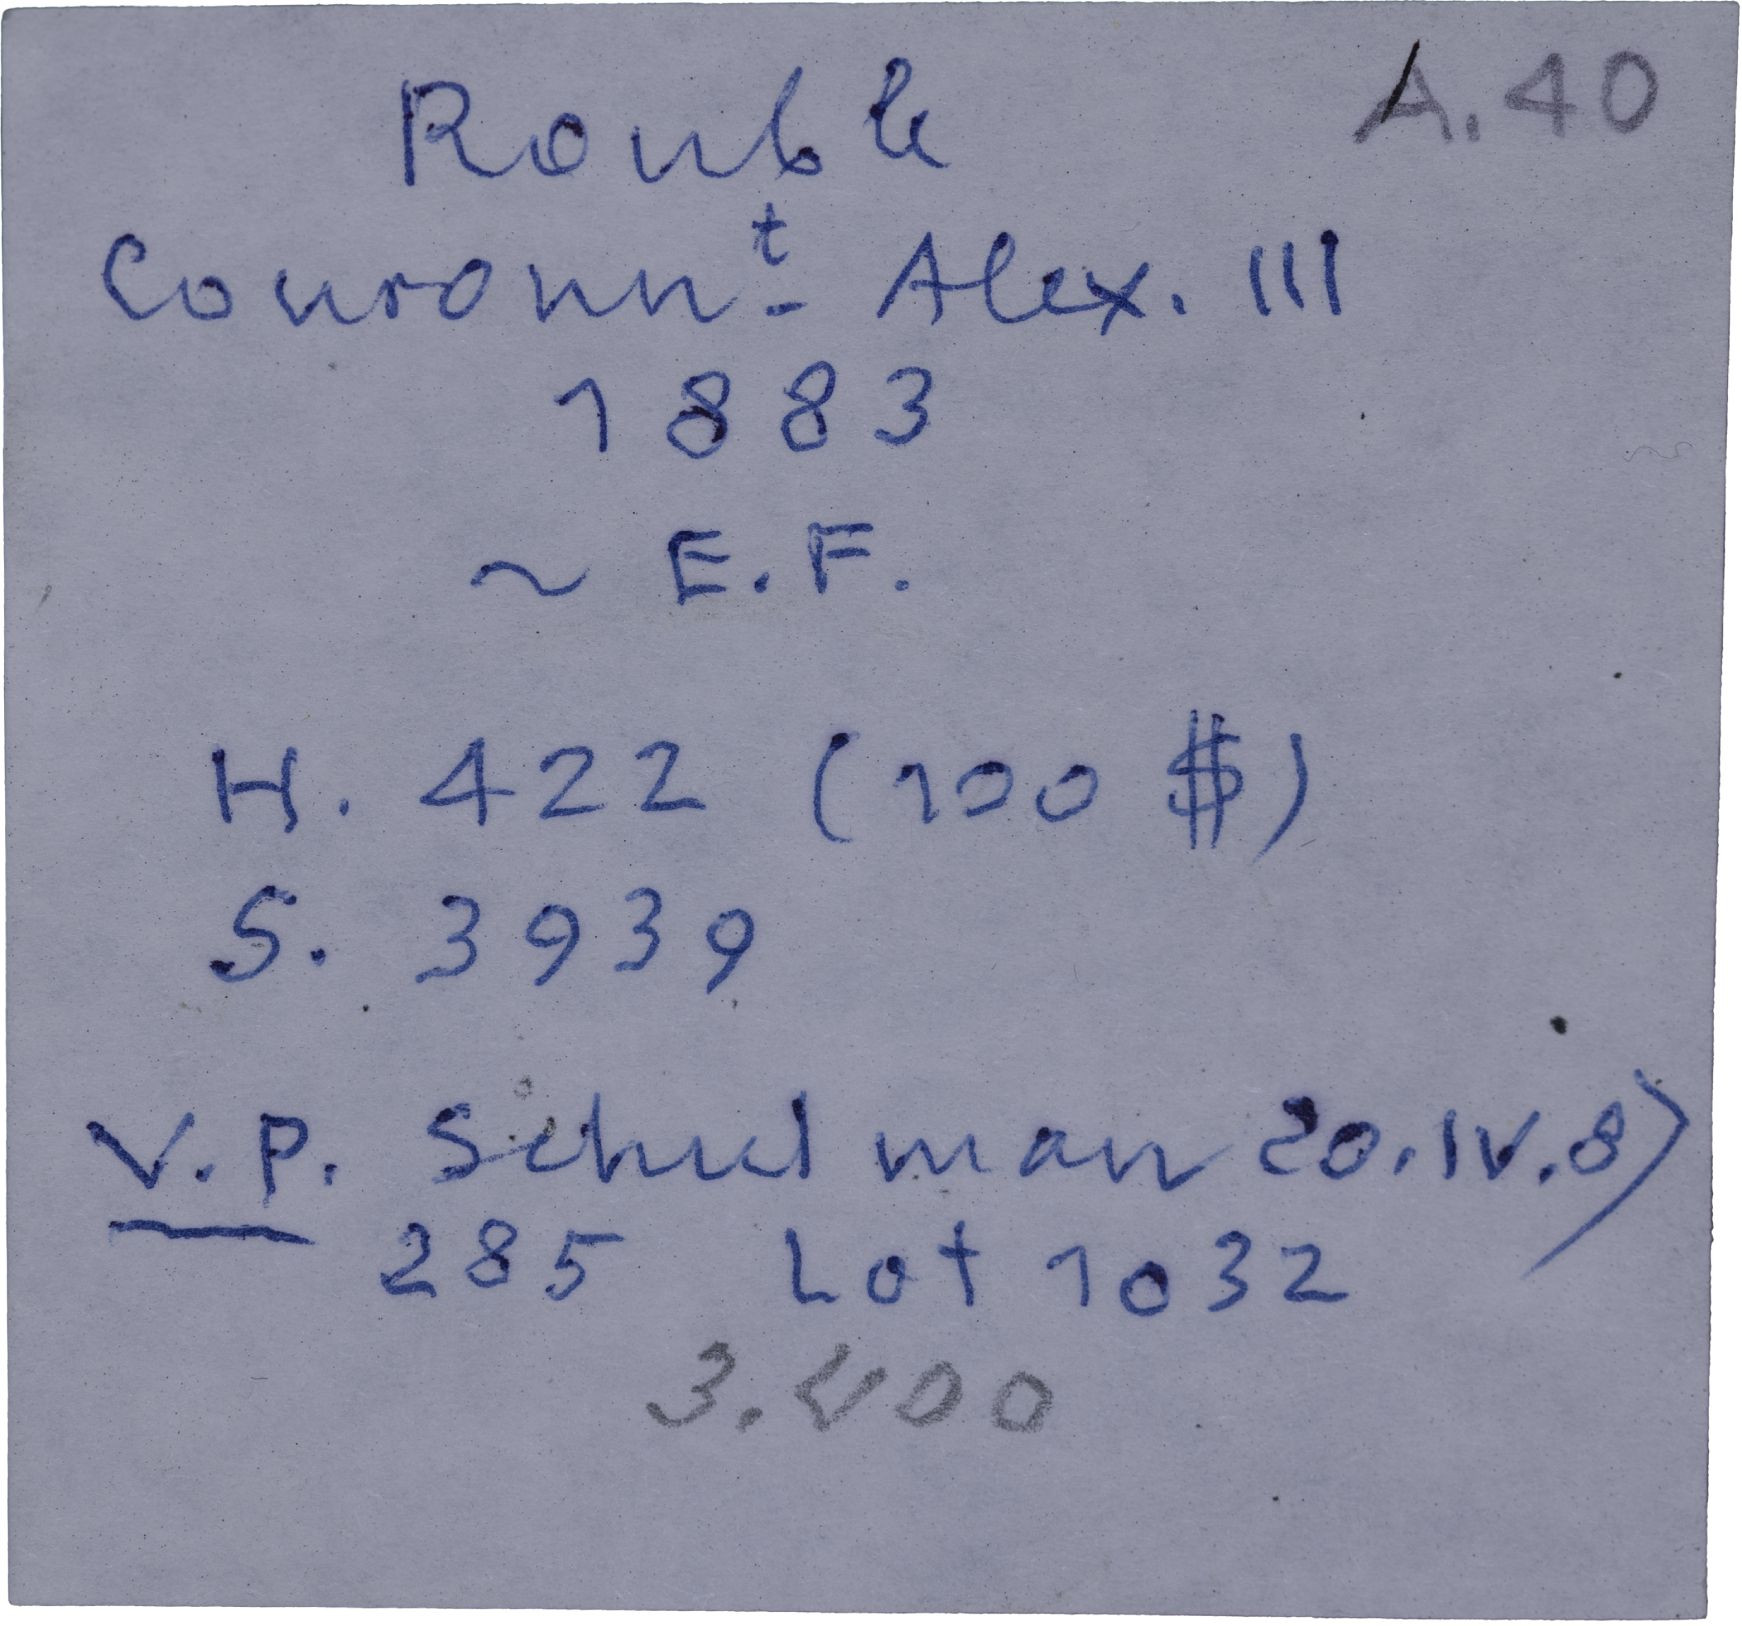 A.40
Rouble
Couronnt. Alex. III
1883
~ E.F.
H. 422 (100 $)
S. 3939
V.P. Schulman 20.IV.87
285 Lot 1032
3.400